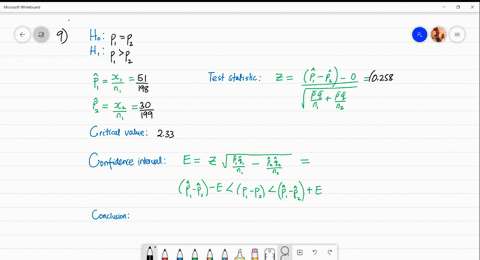 Microsoft Whiteboard
9)
H₀: p₁ = p₂
H₁: p₁ > p₂
p̂₁ = x₁/n₁ = 51/198
p̂₂ = x₂/n₂ = 30/199
Test statistic: z = (p̂₁-p̂₂) - 0 / √(p̄q̄/n₁ + p̄q̄/n₂) = (0.258
Critical value: 2.33
Confidence interval: E = z √(p̂₁q̂₁/n₁ - p̂₂q̂₂/n₂) =
(p̂₁-p̂₂)-E < (p₁-p₂) < (p̂₁-p̂₂)+E
Conclusion: